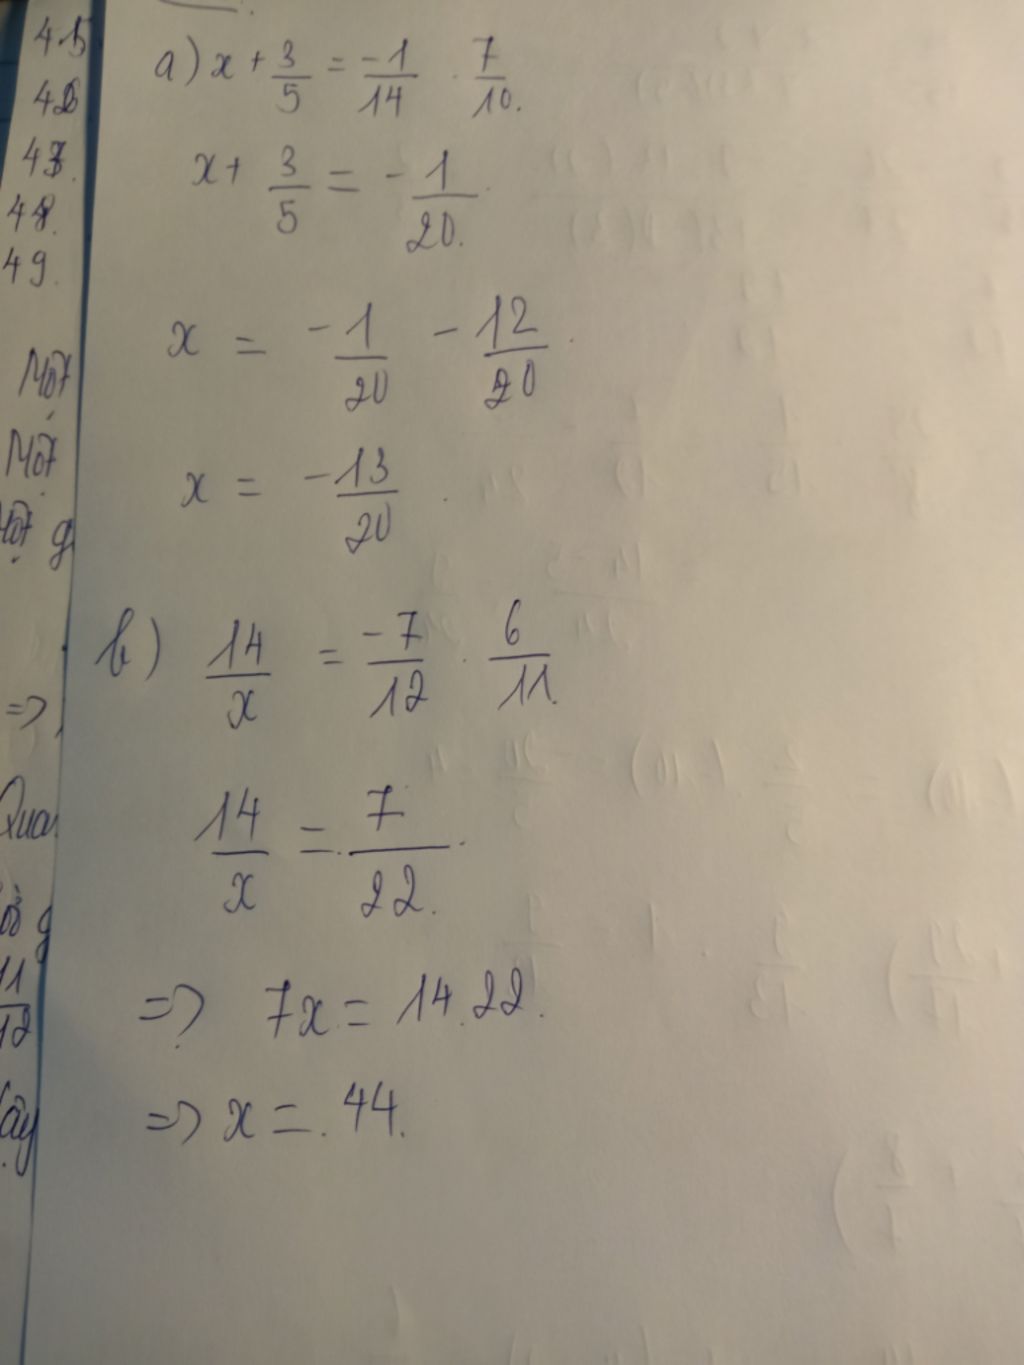 45
46
47.
48.
49.
Một
Một
Một g
=>
Quа
11
12
a) x + 3/5 = -1/14 . 7/10.
x + 3/5 = - 1/20.
x = - 1/20 - 12/20.
x = - 13/20
b) 14/x = -7/12 . 6/11.
14/x = 7/22.
=> 7x = 14.22.
=> x = 44.